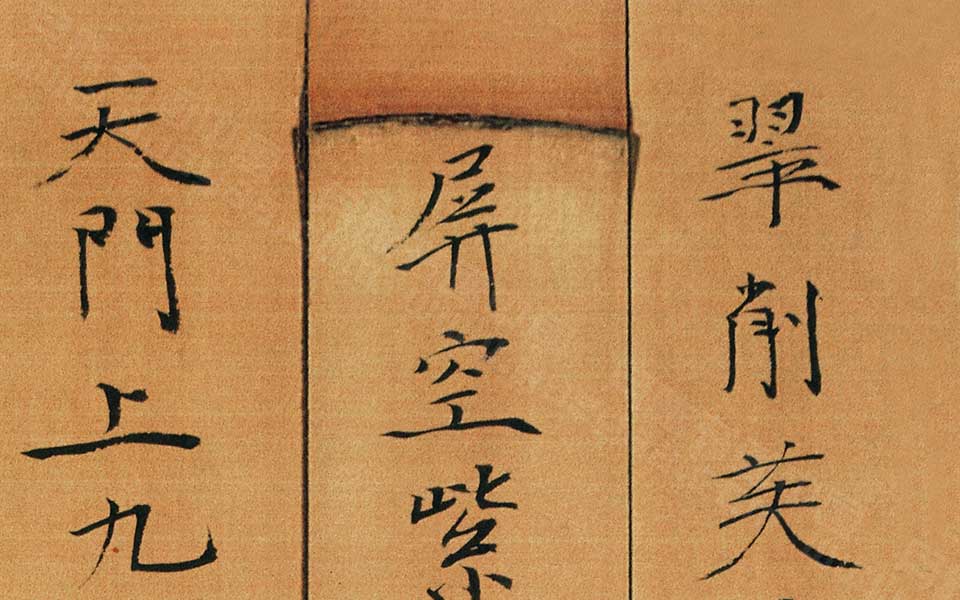 翠削芙
屏空紫
天門上九